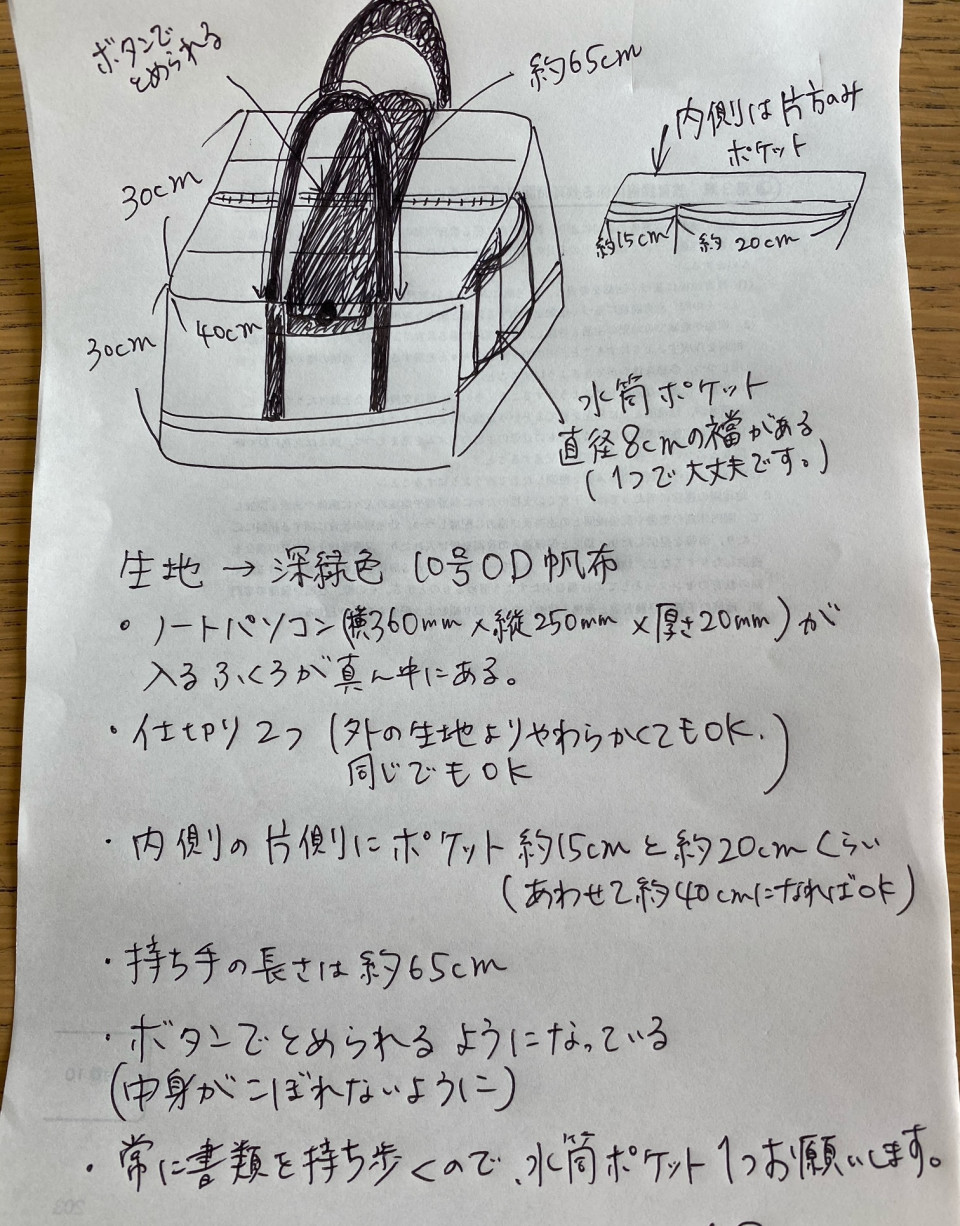 ボタンで
とめられる
約65cm
内側は片方のみ
ポケット
30cm
約15cm
約 20cm
30cm
40cm
水筒ポケット
直径8cmの襠がある
(1つで大丈夫です。)
生地 → 深緑色 10号OD帆布
・ノートパソコン(横360mm×縦250mm×厚さ20mm)が
入るふくろが真ん中にある。
・仕切り2つ (外の生地よりやわらかくてもOK.
同じでもOK)
・内側の片側にポケット約15cmと約20cmくらい
(あわせて約40cmになればOK)
・持ち手の長さは約65cm
・ボタンでとめられるようになっている
(中身がこぼれないように)
・常に書類を持ち歩くので、水筒ポケット1つお願いします。